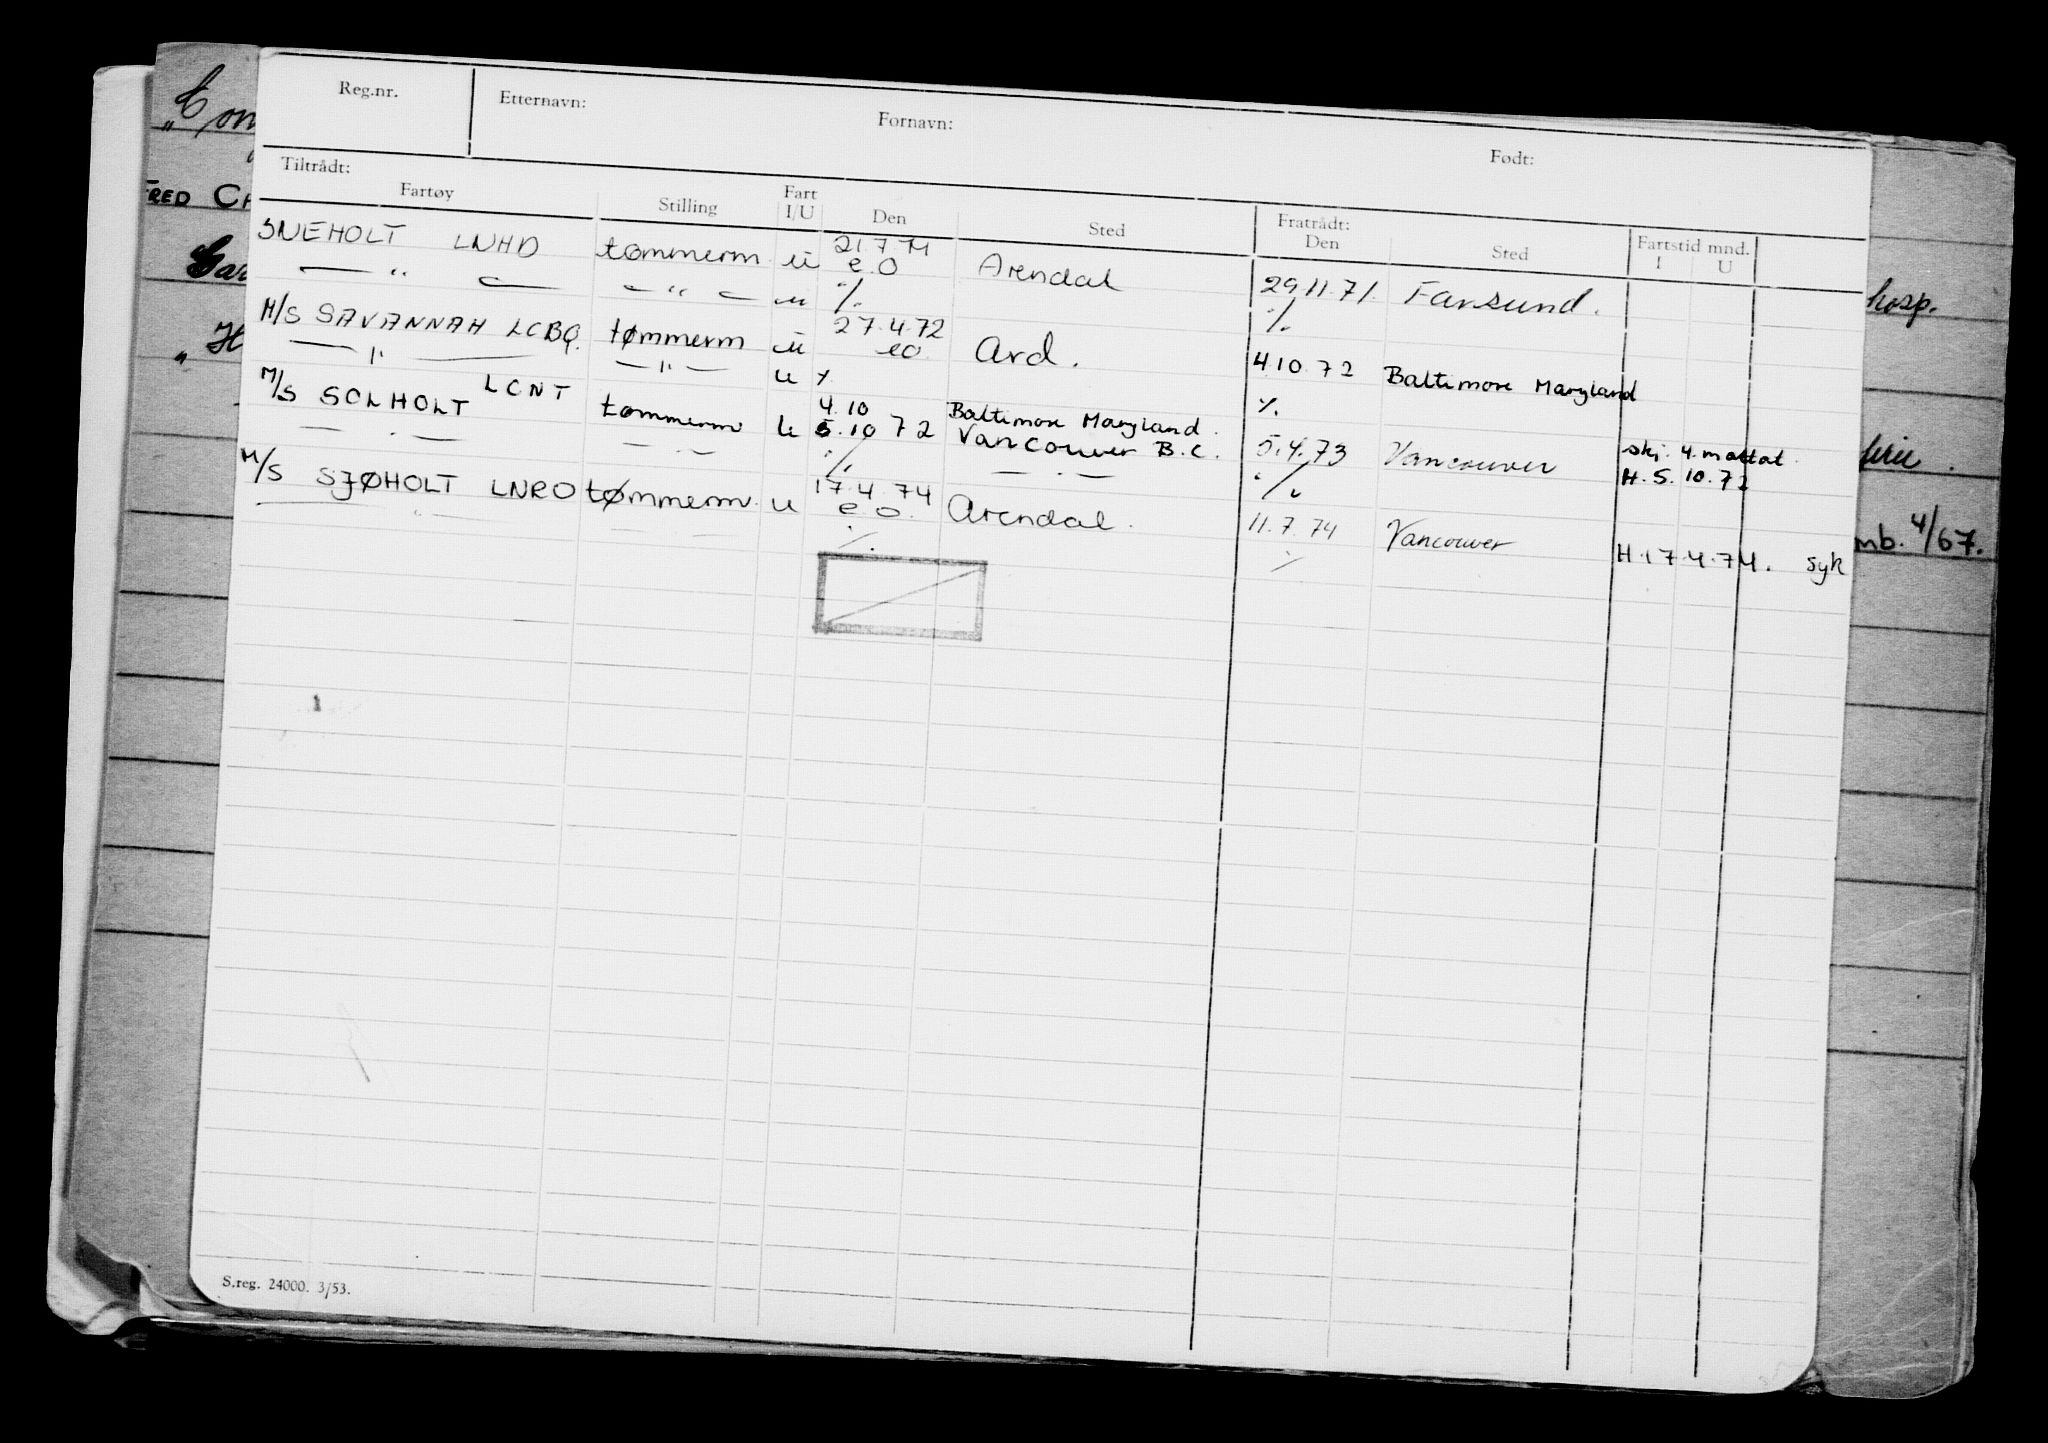 Reg.nr. Etternavn: Fornavn: Født:
Tiltrådt: Fratrådt:
Fartøy Stilling Fart I/U Den Sted Den Sted Fartstid mnd. I U
SNEHOLT LNHD tømmerm u 21.7.71 e.o Arendal 29.11.71. Farsund.
— " — — " — u ./. ./.
M/S SAVANNAH LCBQ. tømmerm u 27.4.72 eo Ard. 4.10.72 Baltimore Maryland
— " — — " — u ./. ./.
M/S SOLHOLT LCNT tømmerm u 4.10 Baltimore Maryland.
— . — — . — 5.10 72 Vancouver B.C. 5.4.73 Vancouver skj. 4. mottat.
./. — . — ./. H. 5. 10. 72
M/S SJØHOLT LNRO tømmerm. u 17.4.74 e o. Arendal. 11.7.74 Vancouver H. 17.4.74. syk
— " — — — ./. ./.
S.reg. 24000. 3/53.
FRED
hosp.
mb. 4/67.